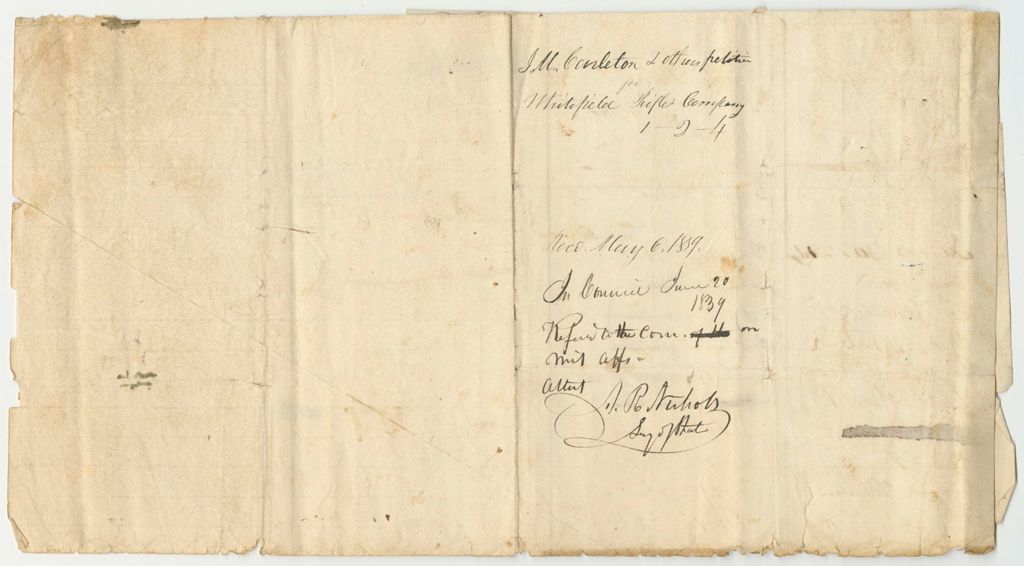 J. M. Carleton & others petition
for
Whitefield Rifle Company
1-2-4
Recd. May 6, 1839.
In Council June 20
1839
Referd to the Com. on
Mil Affs-
Attest
A. R. Nichols
Secy of State